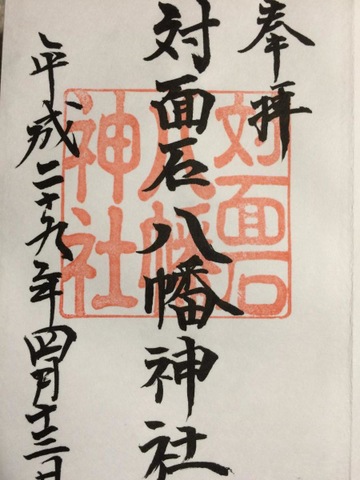 奉拝
対面石八幡神社
平成二十九年四月十三日
対面石
八幡
神社